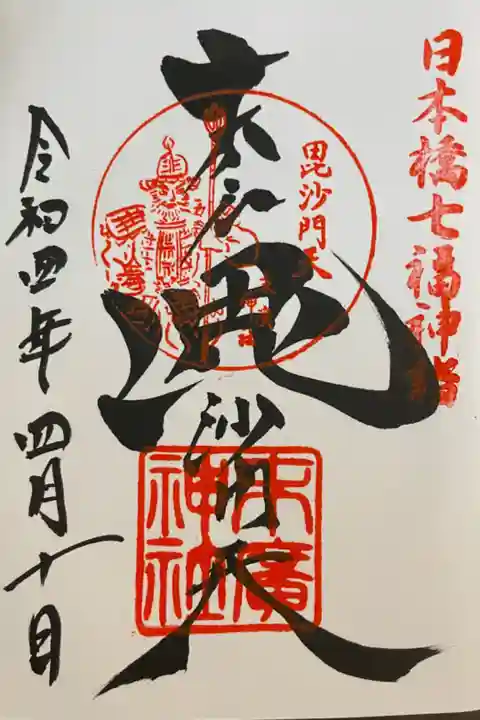 日本橋七福神詣
毘沙門天
末廣
毘沙門天
末廣神社
令和四年 四月十日